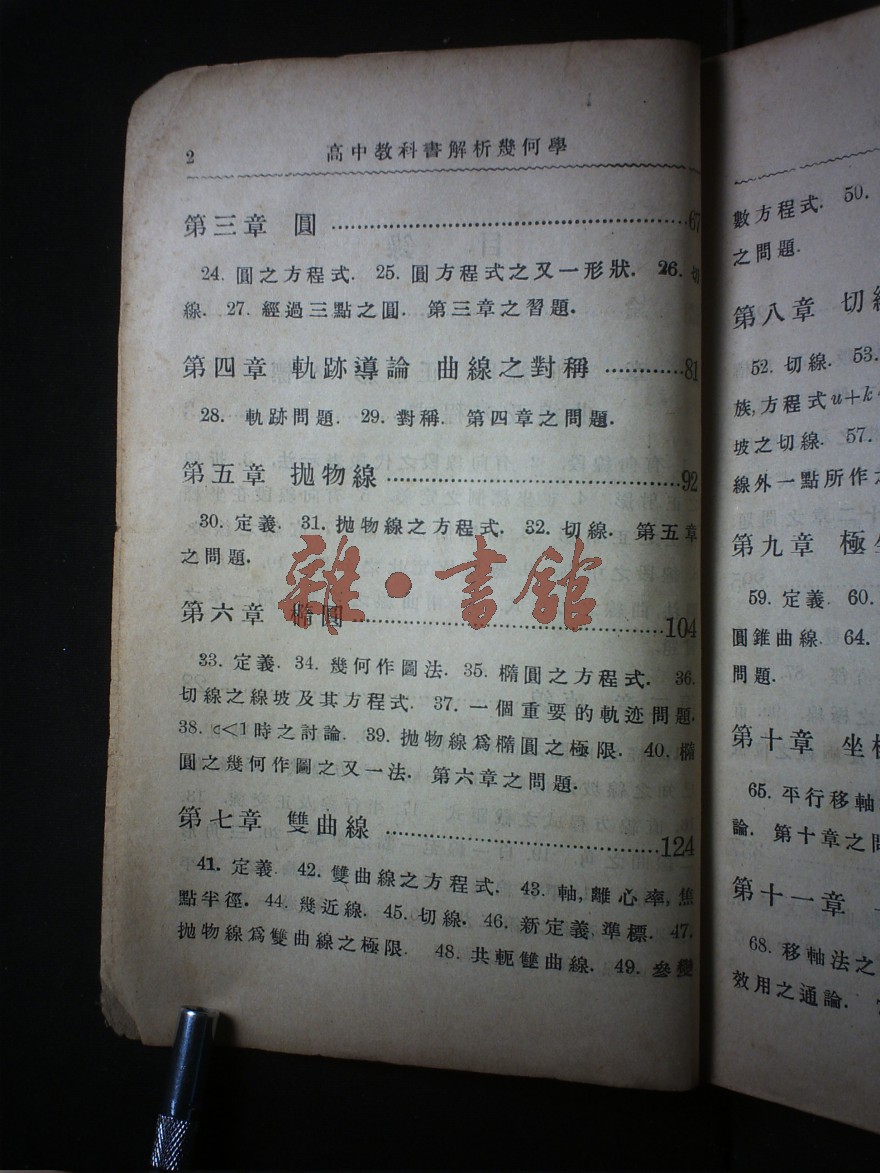 2
高中教科書解析幾何學
第三章 圓 67
24. 圓之方程式. 25. 圓方程式之又一形狀. 26. 切
線. 27. 經過三點之圓. 第三章之習題.
第四章 軌跡導論 曲線之對稱 81
28. 軌跡問題. 29. 對稱. 第四章之問題.
第五章 拋物線 92
30. 定義. 31. 拋物線之方程式. 32. 切線. 第五章
之問題.
雜·書館
第六章 橢圓 104
33. 定義. 34. 幾何作圖法. 35. 橢圓之方程式. 36.
切線之線坡及其方程式. 37. 一個重要的軌迹問題.
38. e<1時之討論. 39. 拋物線爲橢圓之極限. 40. 橢
圓之幾何作圖之又一法. 第六章之問題.
第七章 雙曲線 124
41. 定義. 42. 雙曲線之方程式. 43. 軸,離心率,焦
點半徑. 44. 幾近線. 45. 切線. 46. 新定義,準標. 47.
拋物線爲雙曲線之極限. 48. 共軛雙曲線. 49. 參變
數方程式. 50.
之問題.
第八章 切
52. 切線. 53.
族,方程式u+k
坡之切線. 57.
線外一點所作
第九章 極
59. 定義. 60.
圓錐曲線. 64.
問題.
第十章 坐
65. 平行移軸
論. 第十章之
第十一章
68. 移軸法之
效用之通論.